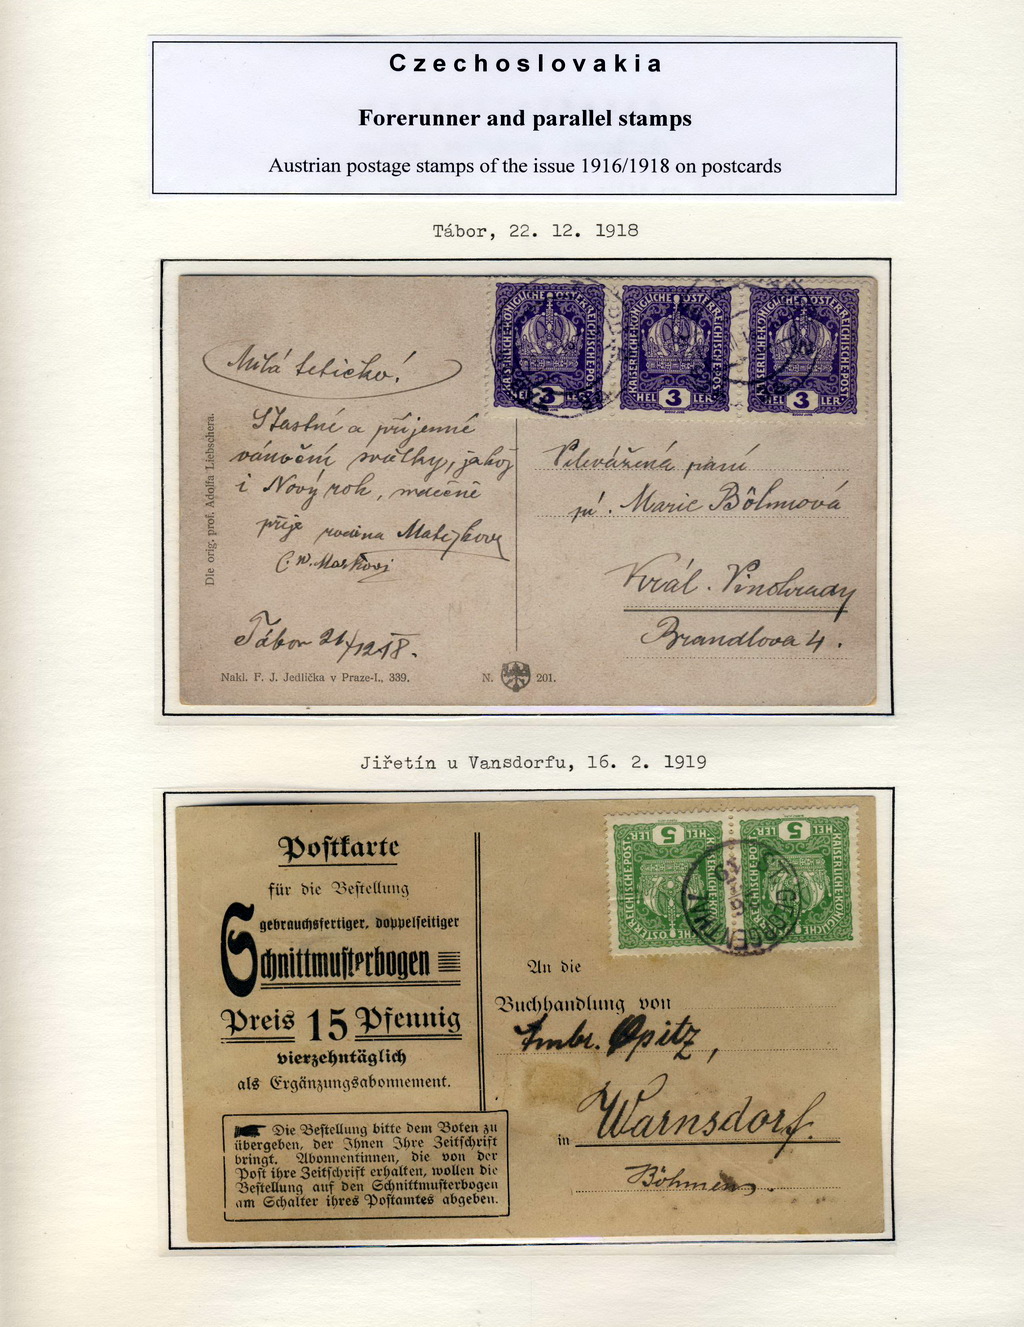 Czechoslovakia
Forerunner and parallel stamps
Austrian postage stamps of the issue 1916/1918 on postcards
Tábor, 22. 12. 1918
KAISERLICHE·KÖNIGLICHE·ÖSTERREICHISCHE·POST·
HELLER 3
KAISERLICHE·KÖNIGLICHE·ÖSTERREICHISCHE·POST·
HELLER 3
KAISERLICHE·KÖNIGLICHE·ÖSTERREICHISCHE·POST·
HELLER 3
Milá tetičko!
Šťastné a příjemné
vánoční svátky, jakož
i Nový rok, srdečně
přeje rodina Matějkova
Tábor 21/12 18.
Dle orig. prof. Adolfa Liebschera.
Velevážená paní
pí. Marie Böhmová
Král. Vinohrady
Brandlova 4.
Nakl. F. J. Jedlička v Praze-I., 339.
N. 201.
Jiřetín u Vansdorfu, 16. 2. 1919
KAISERLICHE·KÖNIGLICHE·ÖSTERREICHISCHE·POST·
HELLER 5
KAISERLICHE·KÖNIGLICHE·ÖSTERREICHISCHE·POST·
HELLER 5
ST. GEORGENTHAL
Postkarte
für die Bestellung
gebrauchsfertiger, doppelseitiger
Schnittmusterbogen
Preis 15 Pfennig
vierzehntäglich
als Ergänzungsabonnement.
Die Bestellung bitte dem Boten zu
übergeben, der Ihnen Ihre Zeitschrift
bringt. Abonnentinnen, die von der
Post ihre Zeitschrift erhalten, wollen die
Bestellung auf den Schnittmusterbogen
am Schalter ihres Postamtes abgeben.
An die
Buchhandlung von
Ambr. Opitz,
in Warnsdorf.
Böhmen.